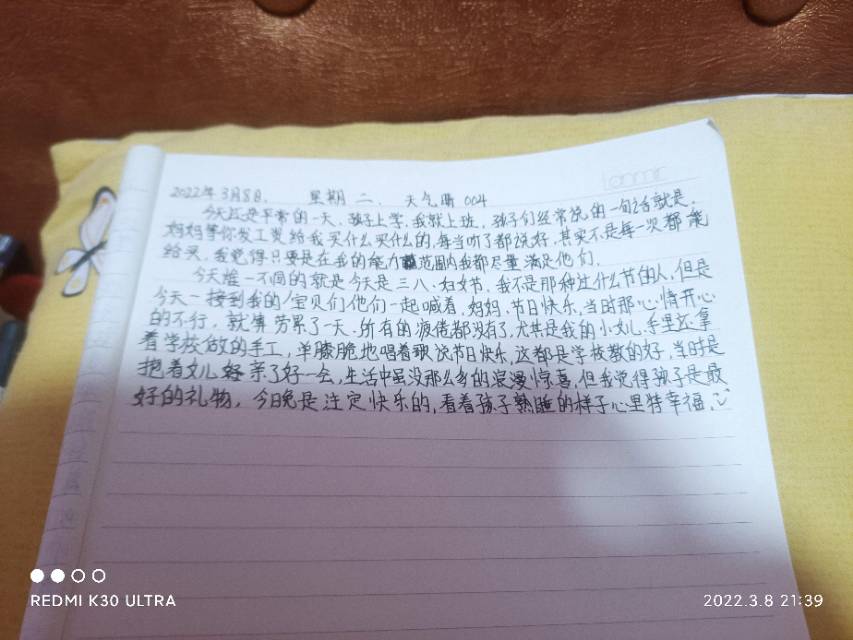 2022年3月8日. 星期二. 天气晴 004
今天还是平常的一天、孩子上学,我就上班,孩子们经常说的一句话就是,
妈妈等你发工资给我买什么买什么的,每当听了都说好,其实不是每一次都能
给买,我觉得只要是在我的能力范围内我都尽量满足他们.
今天惟一不同的就是今天是三八.妇女节.我不是那种过什么节的人,但是
今天一接到我的小宝贝们他们一起喊着.妈妈.节日快乐,当时那心情开心
的不行,就算劳累了一天.所有的疲倦都没有了.尤其是我的小女儿.手里还拿
着学校做的手工,单膝脆地唱着歌说节日快乐,这都是学校教的好,当时是
抱着女儿亲了好一会,生活中虽没那么多的浪漫惊喜,但我觉得孩子是最
好的礼物,今日晚是注定快乐的,看着孩子熟睡的样子心里特幸福.
REDMI K30 ULTRA
2022.3.8 21:39